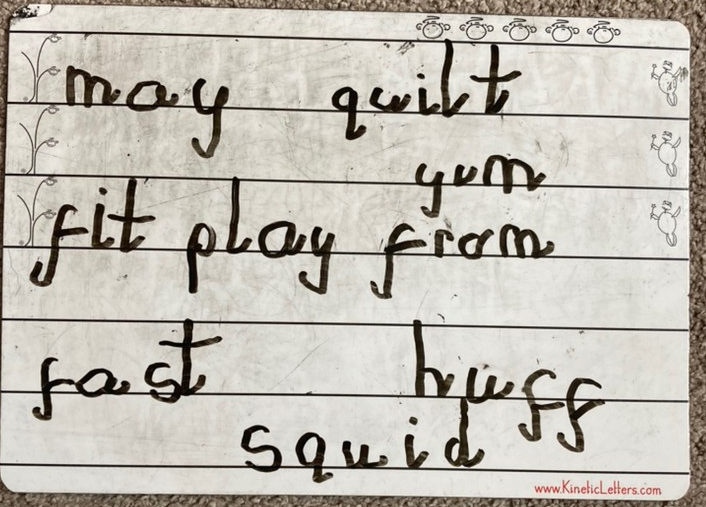 may quilt
yum
fit play from
fast huff
squid
www.KineticLetters.com